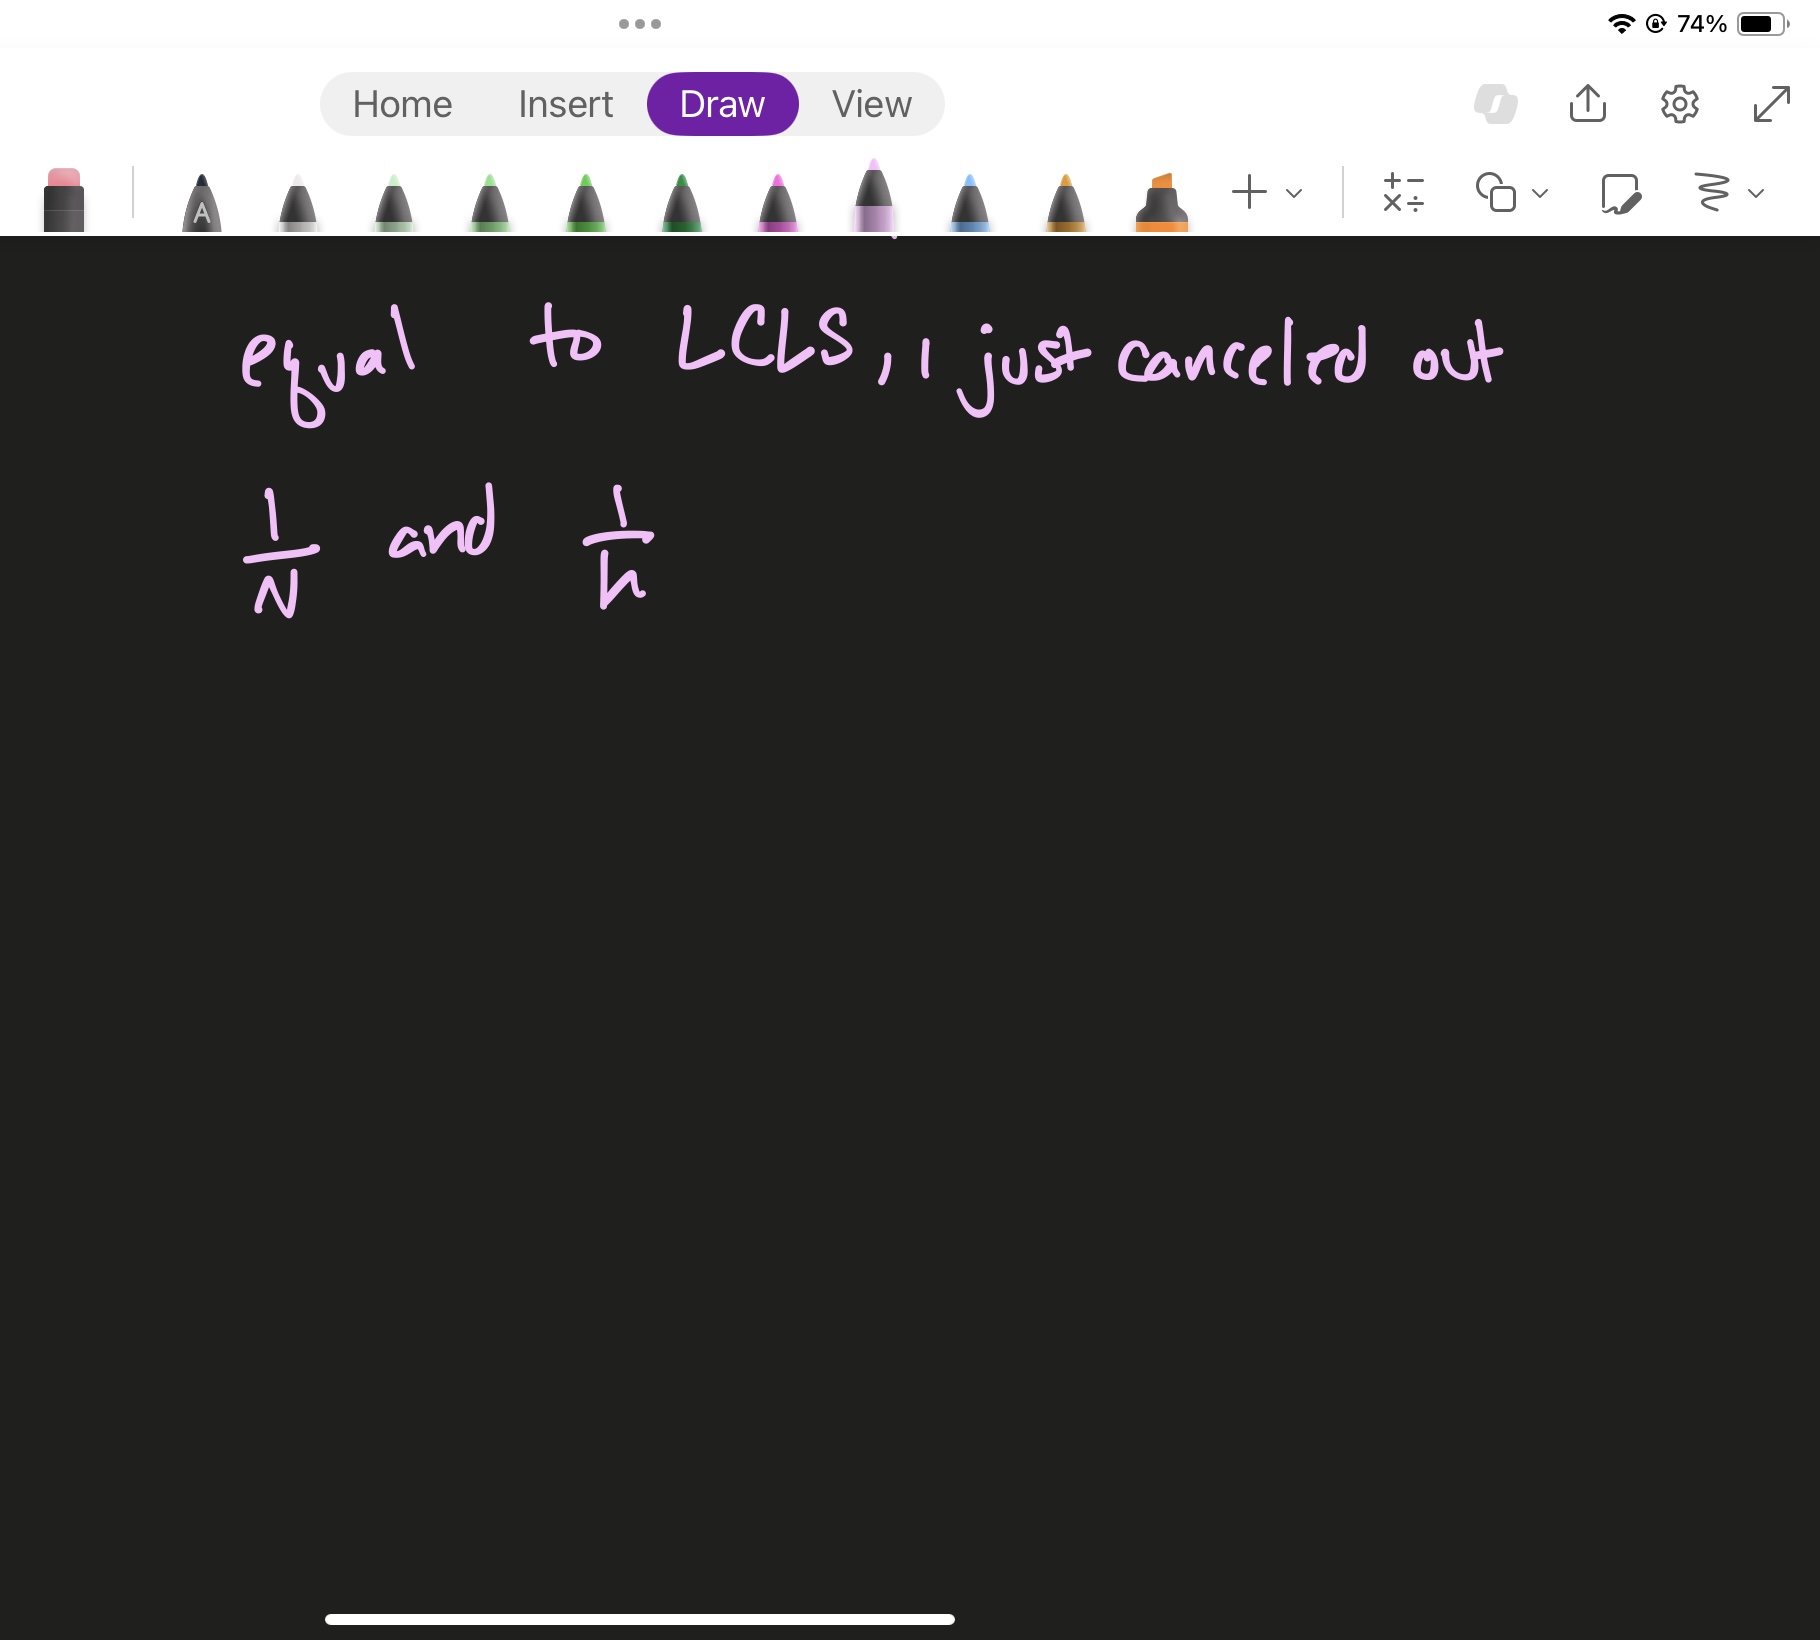 74%
Home Insert Draw View
A
equal to LCLS, I just canceled out
1/N and 1/h